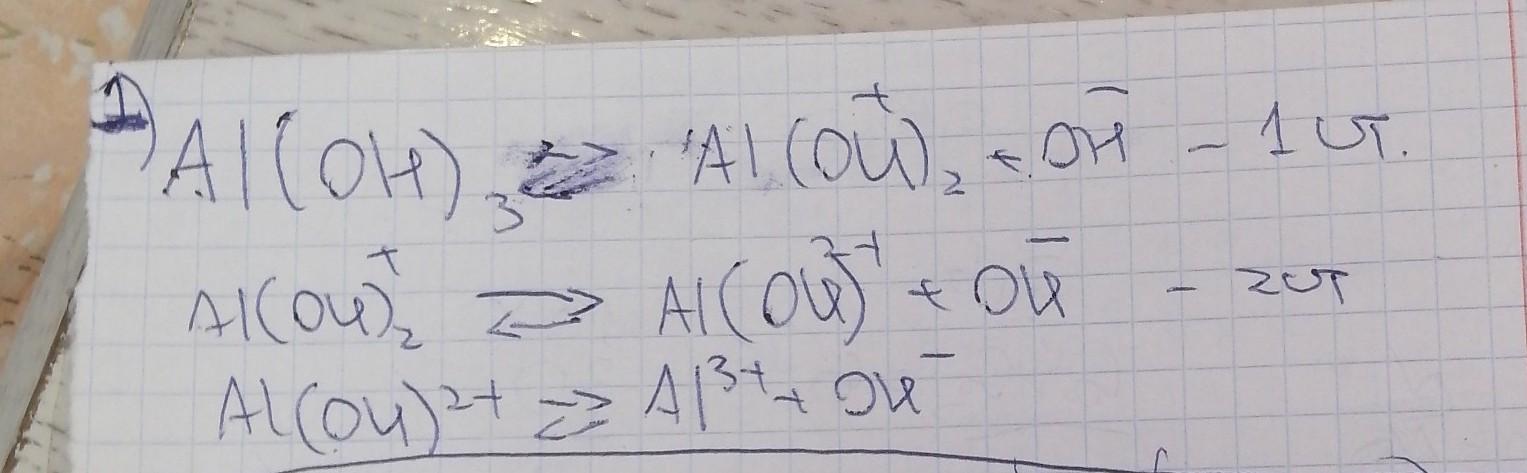 1) Al(OH)₃ ⇄ Al(OH)₂⁺ + OH⁻ - 1 ст.
Al(OH)₂⁺ ⇄ Al(OH)²⁺ + OH⁻ - 2 ст
Al(OH)²⁺ ⇄ Al³⁺ + OH⁻